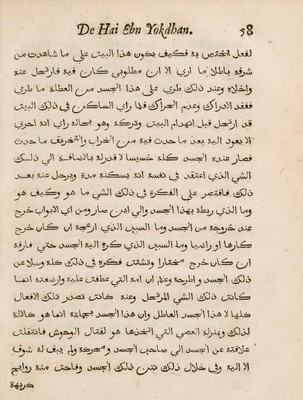 De Hai Ebn Yokdhan. 58
لفعل تختص به فكيف يكون هذا البيت على ما شاهدت من
شرفه باطلا ما ارى الا ان مطلوبى كان فيه فارتحل عنه
واخلاه وعند ذلك طرى على هذا الجسد من العطلة ما طرى
ففقد الادراك وعدم الحراك فلما راى الساكن فى ذلك البيت
قد ارتحل قبل انهدام البيت وتركه وهو بحاله راى انه احرى
الا يعود اليه بعد ما حدث فيه من الخراب والتخريف ما حدث
فصار عنده الجسد كله خسيسا لا قدر له بالاضافة الى ذلك
الشى الذى اعتقد فى نفسه انه يسكنه مدة ويرحل عنه بعد
ذلك فاقتصر على الفكرة فى ذلك الشى ما هو وكيف هو
وما الذى ربطه بهذا الجسد والى اين صار ومن اى الابواب خرج
عند خروجه من الجسد وما السبب الذى ازعجه ان كان خرج
كارها او راضيا وما السبب الذى كره اليه الجسد حتى فارقه
ان كان خرج مختارا وتشتت فكره فى ذلك كله وسلا عن
ذلك الجسد واطرحه وعلم ان امه التى عطفت عليه وارضعته انما
كانت ذلك الشى المرتحل وعنه كانت تصدر تلك الافعال
كلها لا هذا الجسد العاطل وان هذا الجسد بجملته انما هو كالالة
لذلك وبمنزلة العصى التى اتخذها هو لقتال الوحوش فانتقلت
علاقته عن الجسد الى صاحب الجسد ومحركه ولم يبق له شوق
الا اليه وفى خلال ذلك نتن ذلك الجسد وقامت منه روايح
كريهة